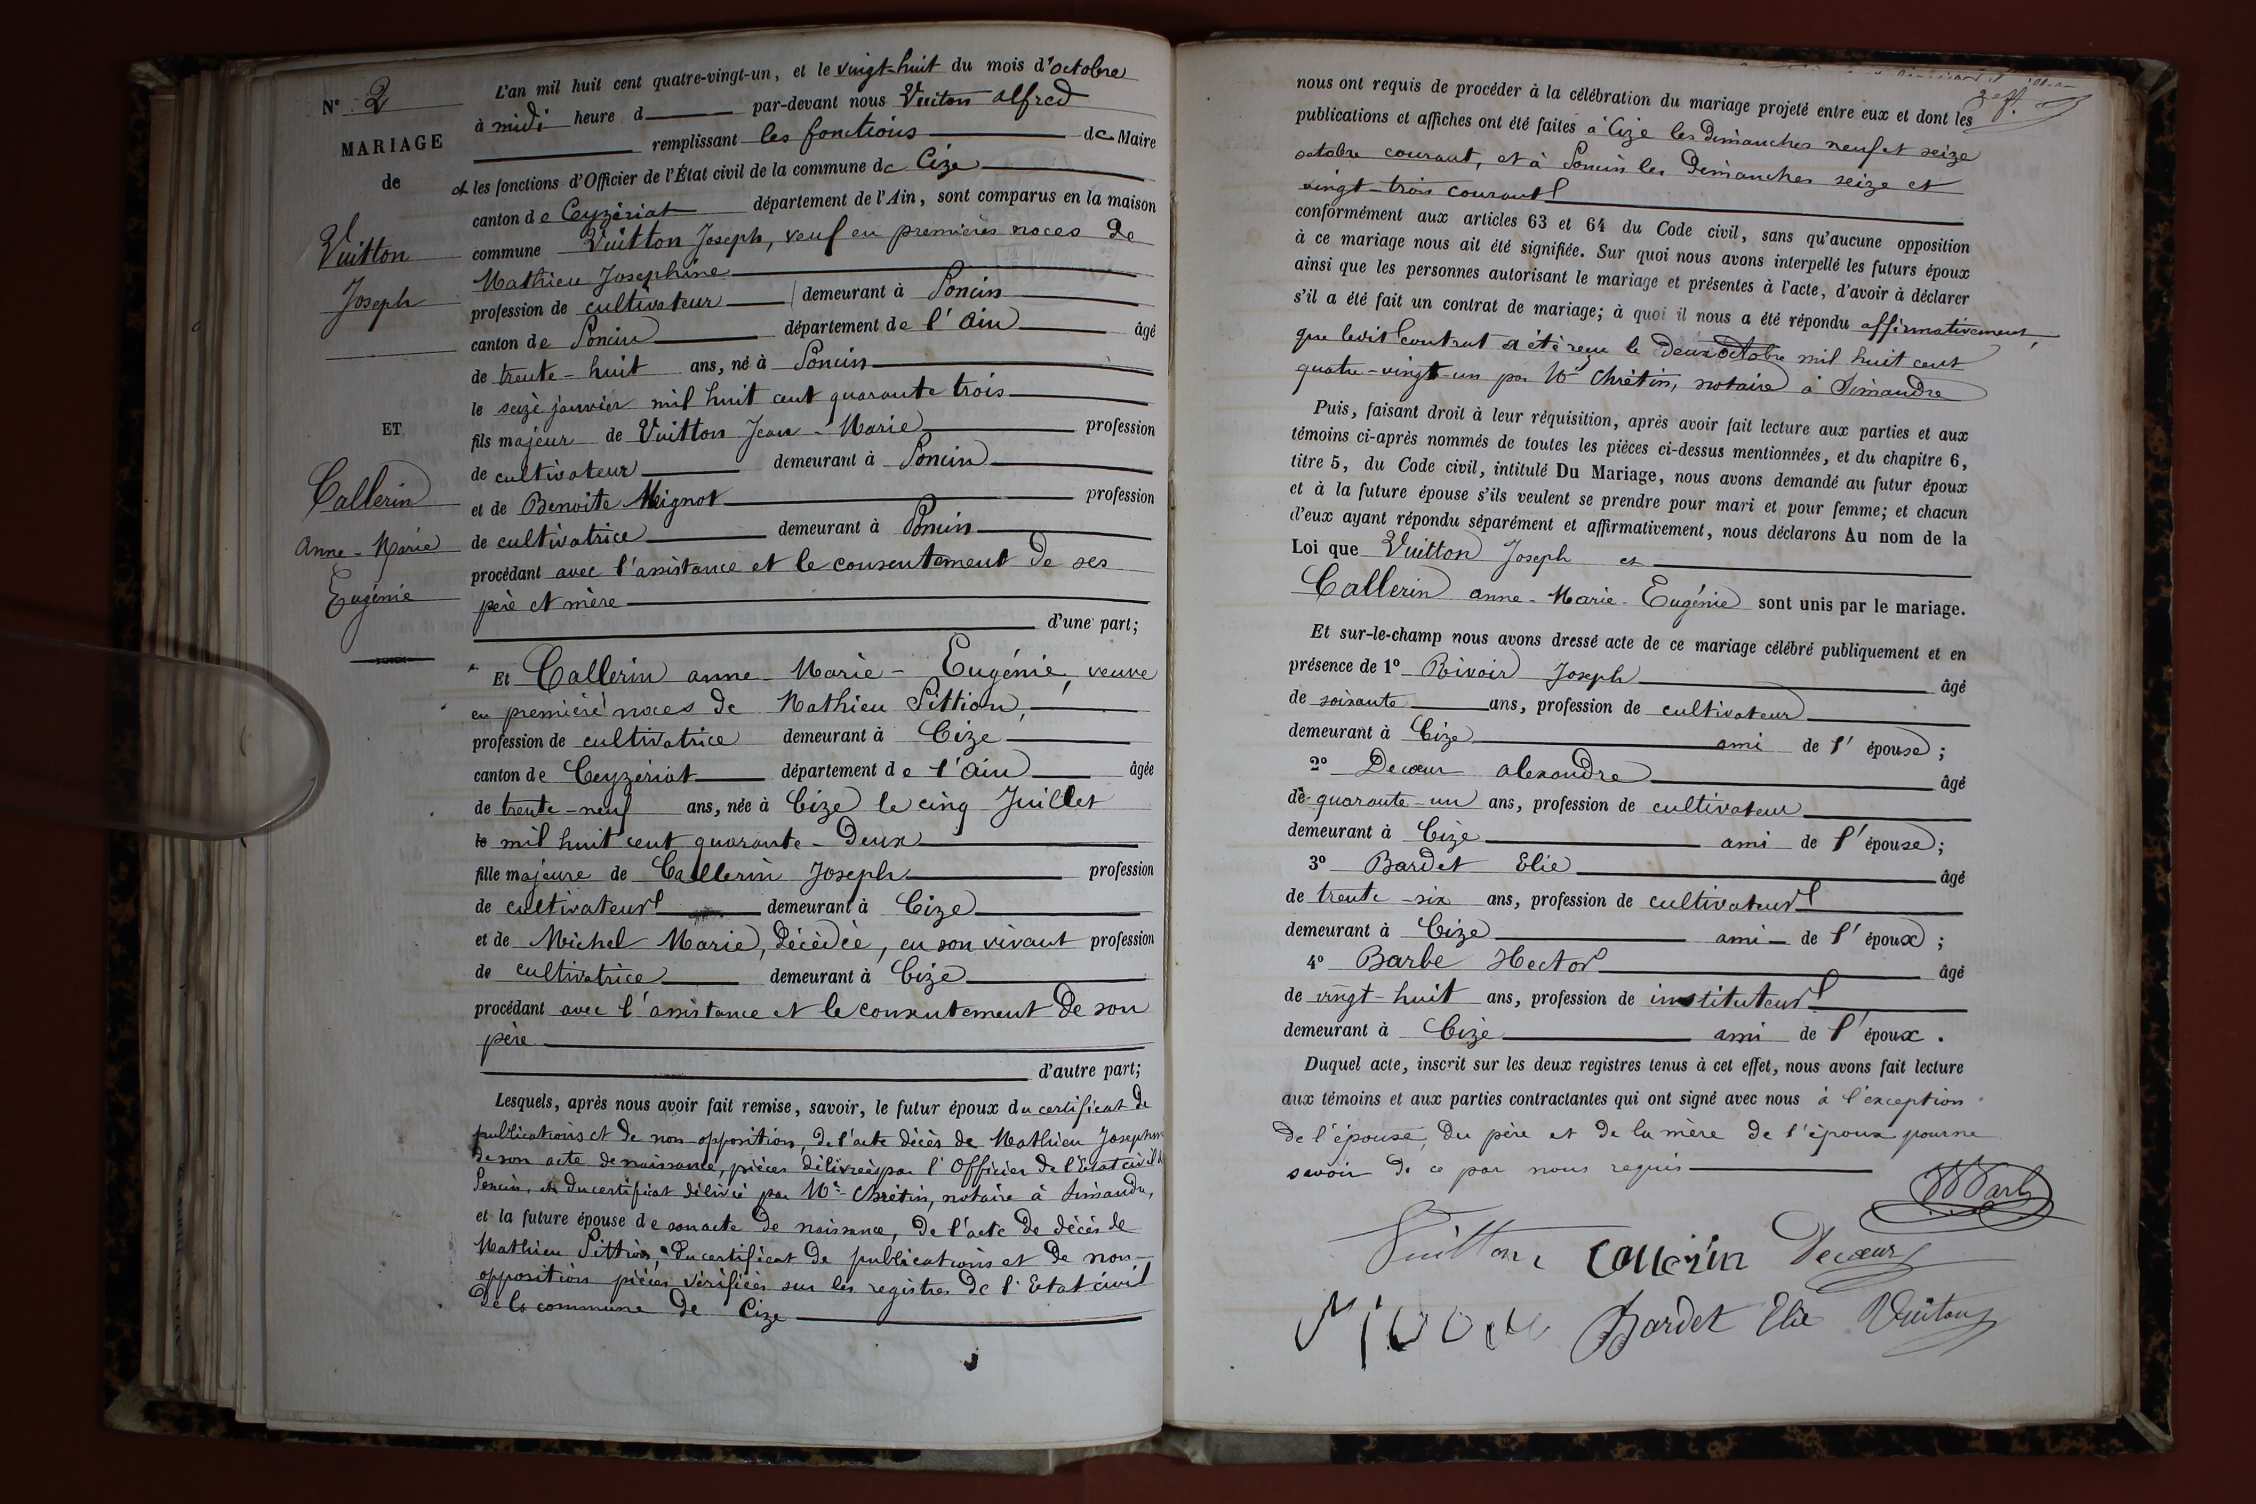 L'an mil huit cent quatre-vingt-un, et le vingt-huit du mois d'octobre
N° 2
à midi heure d par-devant nous Vuiton alfred
MARIAGE
remplissant les fonctions de Maire
de
et les fonctions d'Officier de l'État civil de la commune de Cize
canton de Ceyzériat département de l'Ain, sont comparus en la maison
Vuitton
commune Vuitton Joseph, veuf en premières noces de
Mathieu Joséphine
Joseph
profession de cultivateur demeurant à Poncin
canton de Poncin département de l'Ain âgé
de trente-huit ans, né à Poncin
le seize janvier mil huit cent quarante trois
ET
fils majeur de Vuitton Jean-Marie profession
de cultivateur demeurant à Poncin
Callerin
et de Benoite Mignot profession
Anne-Marie
de cultivatrice demeurant à Poncin
procédant avec l'assistance et le consentement de ses
Eugénie
père et mère
d'une part;
Et Callerin anne-Marie-Eugénie, veuve
en première noces de Mathieu Pittion,
profession de cultivatrice demeurant à Cize
canton de Ceyzériat département de l'Ain âgée
de trente-neuf ans, née à Cize le cinq Juillet
le mil huit cent quarante-deux
fille majeure de Callerin Joseph profession
de cultivateur demeurant à Cize
et de Michel Marie, décédée, en son vivant profession
de cultivatrice demeurant à Cize
procédant avec l'assistance et le consentement de son
père
d'autre part;
Lesquels, après nous avoir fait remise, savoir, le futur époux du certificat de
publications et de non-opposition, de l'acte décès de Mathieu Joséphine
de son acte de naissance, pièces délivrées par l'Officier de l'État civil de
Poncin, et du certificat délivré par Me Chrétin, notaire à Simandre,
et la future épouse de son acte de naissance, de l'acte de décès de
Mathieu Pittion, du certificat de publications et de non-
opposition pièces vérifiées sur les registres de l'Etat civil
de la commune de Cize
nous ont requis de procéder à la célébration du mariage projeté entre eux et dont les
publications et affiches ont été faites à Cize les dimanches neuf et seize
octobre courant, et à Poncin les Dimanches seize et
vingt-trois courant
conformément aux articles 63 et 64 du Code civil, sans qu'aucune opposition
à ce mariage nous ait été signifiée. Sur quoi nous avons interpellé les futurs époux
ainsi que les personnes autorisant le mariage et présentes à l'acte, d'avoir à déclarer
s'il a été fait un contrat de mariage; à quoi il nous a été répondu affirmativement,
que ledit contrat a été reçu le deux octobre mil huit cent
quatre-vingt-un par Me Chrétin, notaire à Simandre
Puis, faisant droit à leur réquisition, après avoir fait lecture aux parties et aux
témoins ci-après nommés de toutes les pièces ci-dessus mentionnées, et du chapitre 6,
titre 5, du Code civil, intitulé Du Mariage, nous avons demandé au futur époux
et à la future épouse s'ils veulent se prendre pour mari et pour femme; et chacun
d'eux ayant répondu séparément et affirmativement, nous déclarons Au nom de la
Loi que Vuitton Joseph et
Callerin anne-Marie-Eugénie sont unis par le mariage.
Et sur-le-champ nous avons dressé acte de ce mariage célébré publiquement et en
présence de 1° Rivoir Joseph âgé
de soixante ans, profession de cultivateur
demeurant à Cize ami de l'épouse;
2° Decœur alexandre âgé
de quarante-un ans, profession de cultivateur
demeurant à Cize ami de l'épouse;
3° Bardet Elie âgé
de trente-six ans, profession de cultivateur
demeurant à Cize ami de l'époux;
4° Barbe Hector âgé
de vingt-huit ans, profession de instituteur
demeurant à Cize ami de l'époux.
Duquel acte, inscrit sur les deux registres tenus à cet effet, nous avons fait lecture
aux témoins et aux parties contractantes qui ont signé avec nous à l'exception
de l'épouse, du père et de la mère de l'époux pour ne
savoir de ce par nous requis
Vuitton Callerin Decœur
Bardet Elie Vuiton